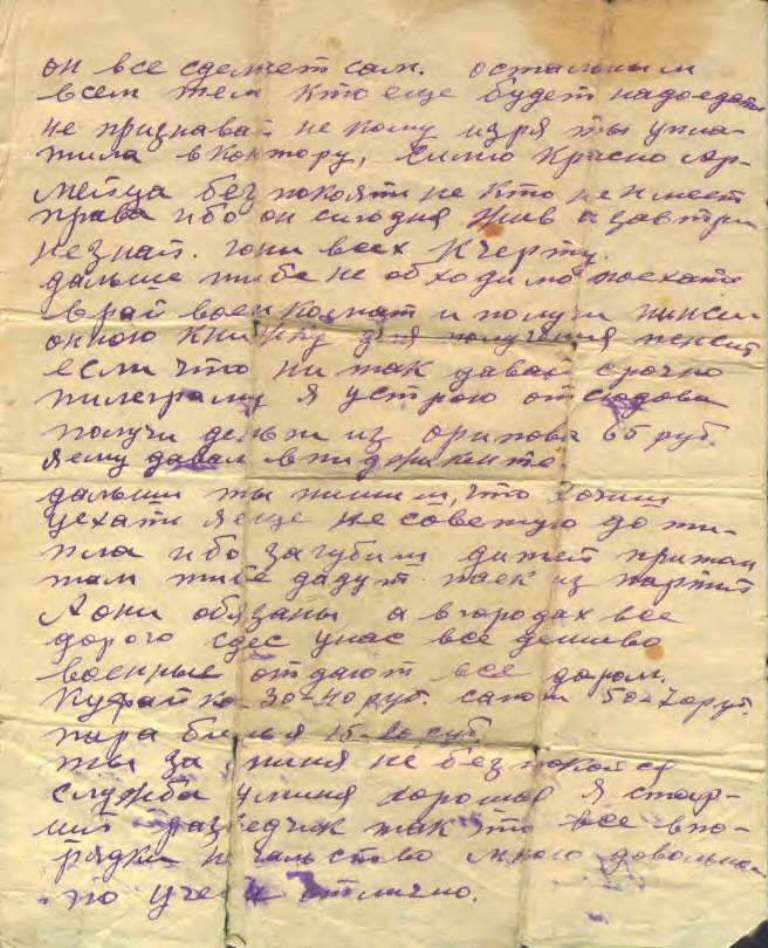 он все сделает сам. остальным
всем тем кто еще будет надоедать
не признавай не кому изря ты упла-
тила в контору, Симю Красноар-
мейца безпокояти не кто не имеет
права ибо он сигодня жив а завтри
незнай. гони всех кчерту.
дальше тибе не обходимо поехати
врай военкомат и получи пинси
онною книжку для получения пенсий
если что ни так давай срочно
тилеграму я устрою отсюдова
получи деньги из 65 руб.
я ему давал
дальши ты пишиш, что хочиш
уехати я еще не советую до ти-
пла ибо загубиш дитей притом
там тибе дадут паек из партий
А они обязаны а вгородах все
дорого сдес унас все дешиво
военные отдают все даром.
Куфайко 30-40 руб. сапоги 50-70 руб.
пара билья 15-20 руб
ты за миня не безпокойся
служба уминя хорошая я стар-
ший разведчик так что все впо-
рядки начальство мною довольно
по учебе отлично.